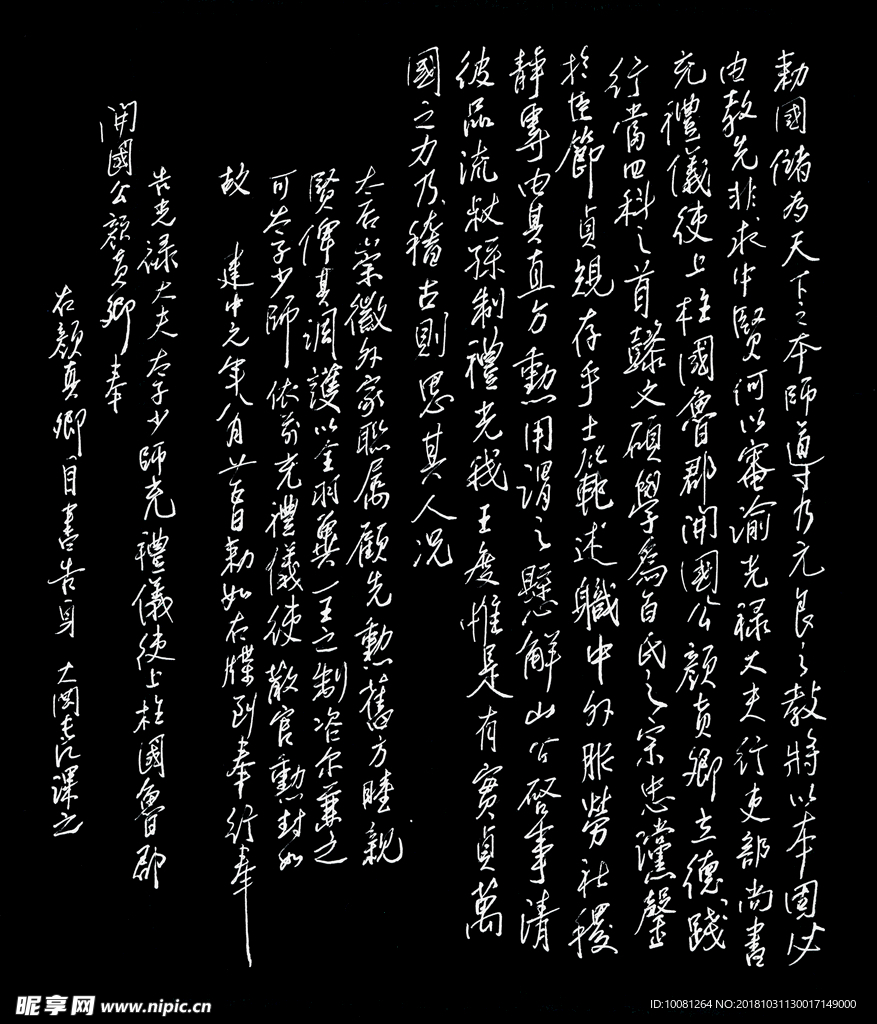 勅國儲為天下之本師導乃元良之教將以本固必
由教先非求中賢何以審諭光禄大夫行吏部尚書
充禮儀使上柱國魯郡開國公顔真卿立德踐
行當四科之首懿文碩學為百氏之宗忠讜罄
於臣節貞規存乎士範述職中外服勞社稷
靜專由其直方動用謂之懸解山公啓事清
彼品流叔孫制禮光我王度惟是有實貞萬
國之力乃稽古則思其人况
太后崇徽外家聯属顧先勲舊方睦親
賢俾其調護以全羽翼一王之制咨尔兼之
可太子少師依前充禮儀使散官勲封如
故 建中元年八月廿五日勅如右牒到奉行奉
告光禄大夫太子少師充禮儀使上柱國魯郡
開國公顔真卿奉
右顔真卿自書告身
昵享网 www.nipic.cn
ID:10081264 NO:20181031130017149000